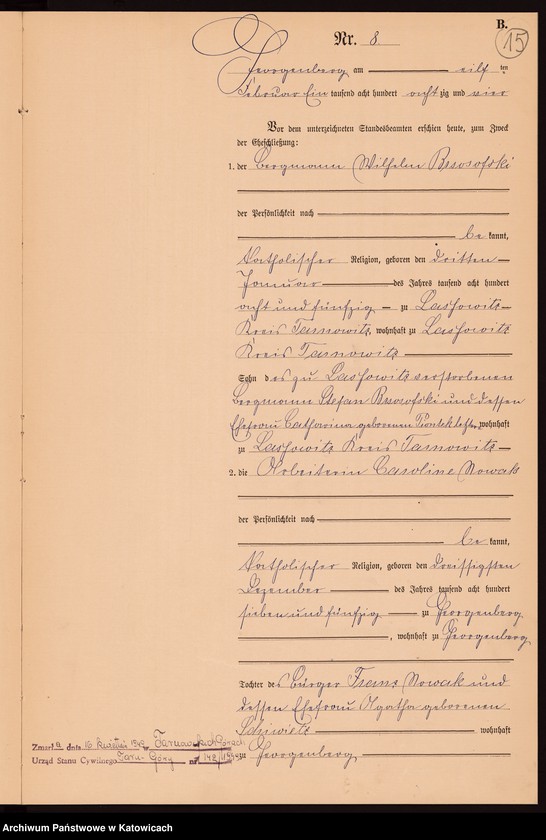 B.
15
Nr. 8.
Georgenberg am eilf ten
Februar Ein tausend acht hundert achtzig und vier
Vor dem unterzeichneten Standesbeamten erschien heute, zum Zweck
der Eheschließung:
1. der Bergmann Wilhelm
der Persönlichkeit nach
be kannt,
katholischer Religion, geboren den dritten
Januar des Jahres tausend acht hundert
acht und fünfzig zu Lassowitz
Kreis Tarnowitz, wohnhaft zu Lassowitz
Kreis Tarnowitz
Sohn des zu Lassowitz verstorbenen
Bergmann Stefan und dessen
Ehefrau Catharina geborenen wohnhaft
zu Lassowitz Kreis Tarnowitz
2. die Arbeiterin Caroline Nowak
der Persönlichkeit nach
be kannt,
katholischer Religion, geboren den dreissigsten
Dezember des Jahres tausend acht hundert
sieben und fünfzig zu Georgenberg
, wohnhaft zu Georgenberg
Tochter des Bürger Franz Nowak und
dessen Ehefrau Agatha geborenen
wohnhaft
zu Georgenberg
Zmarła dnia 16 Tarnowskich Górach
Urząd Stanu Cywilnego Tarn. Góry nr
Archiwum Państwowe w Katowicach